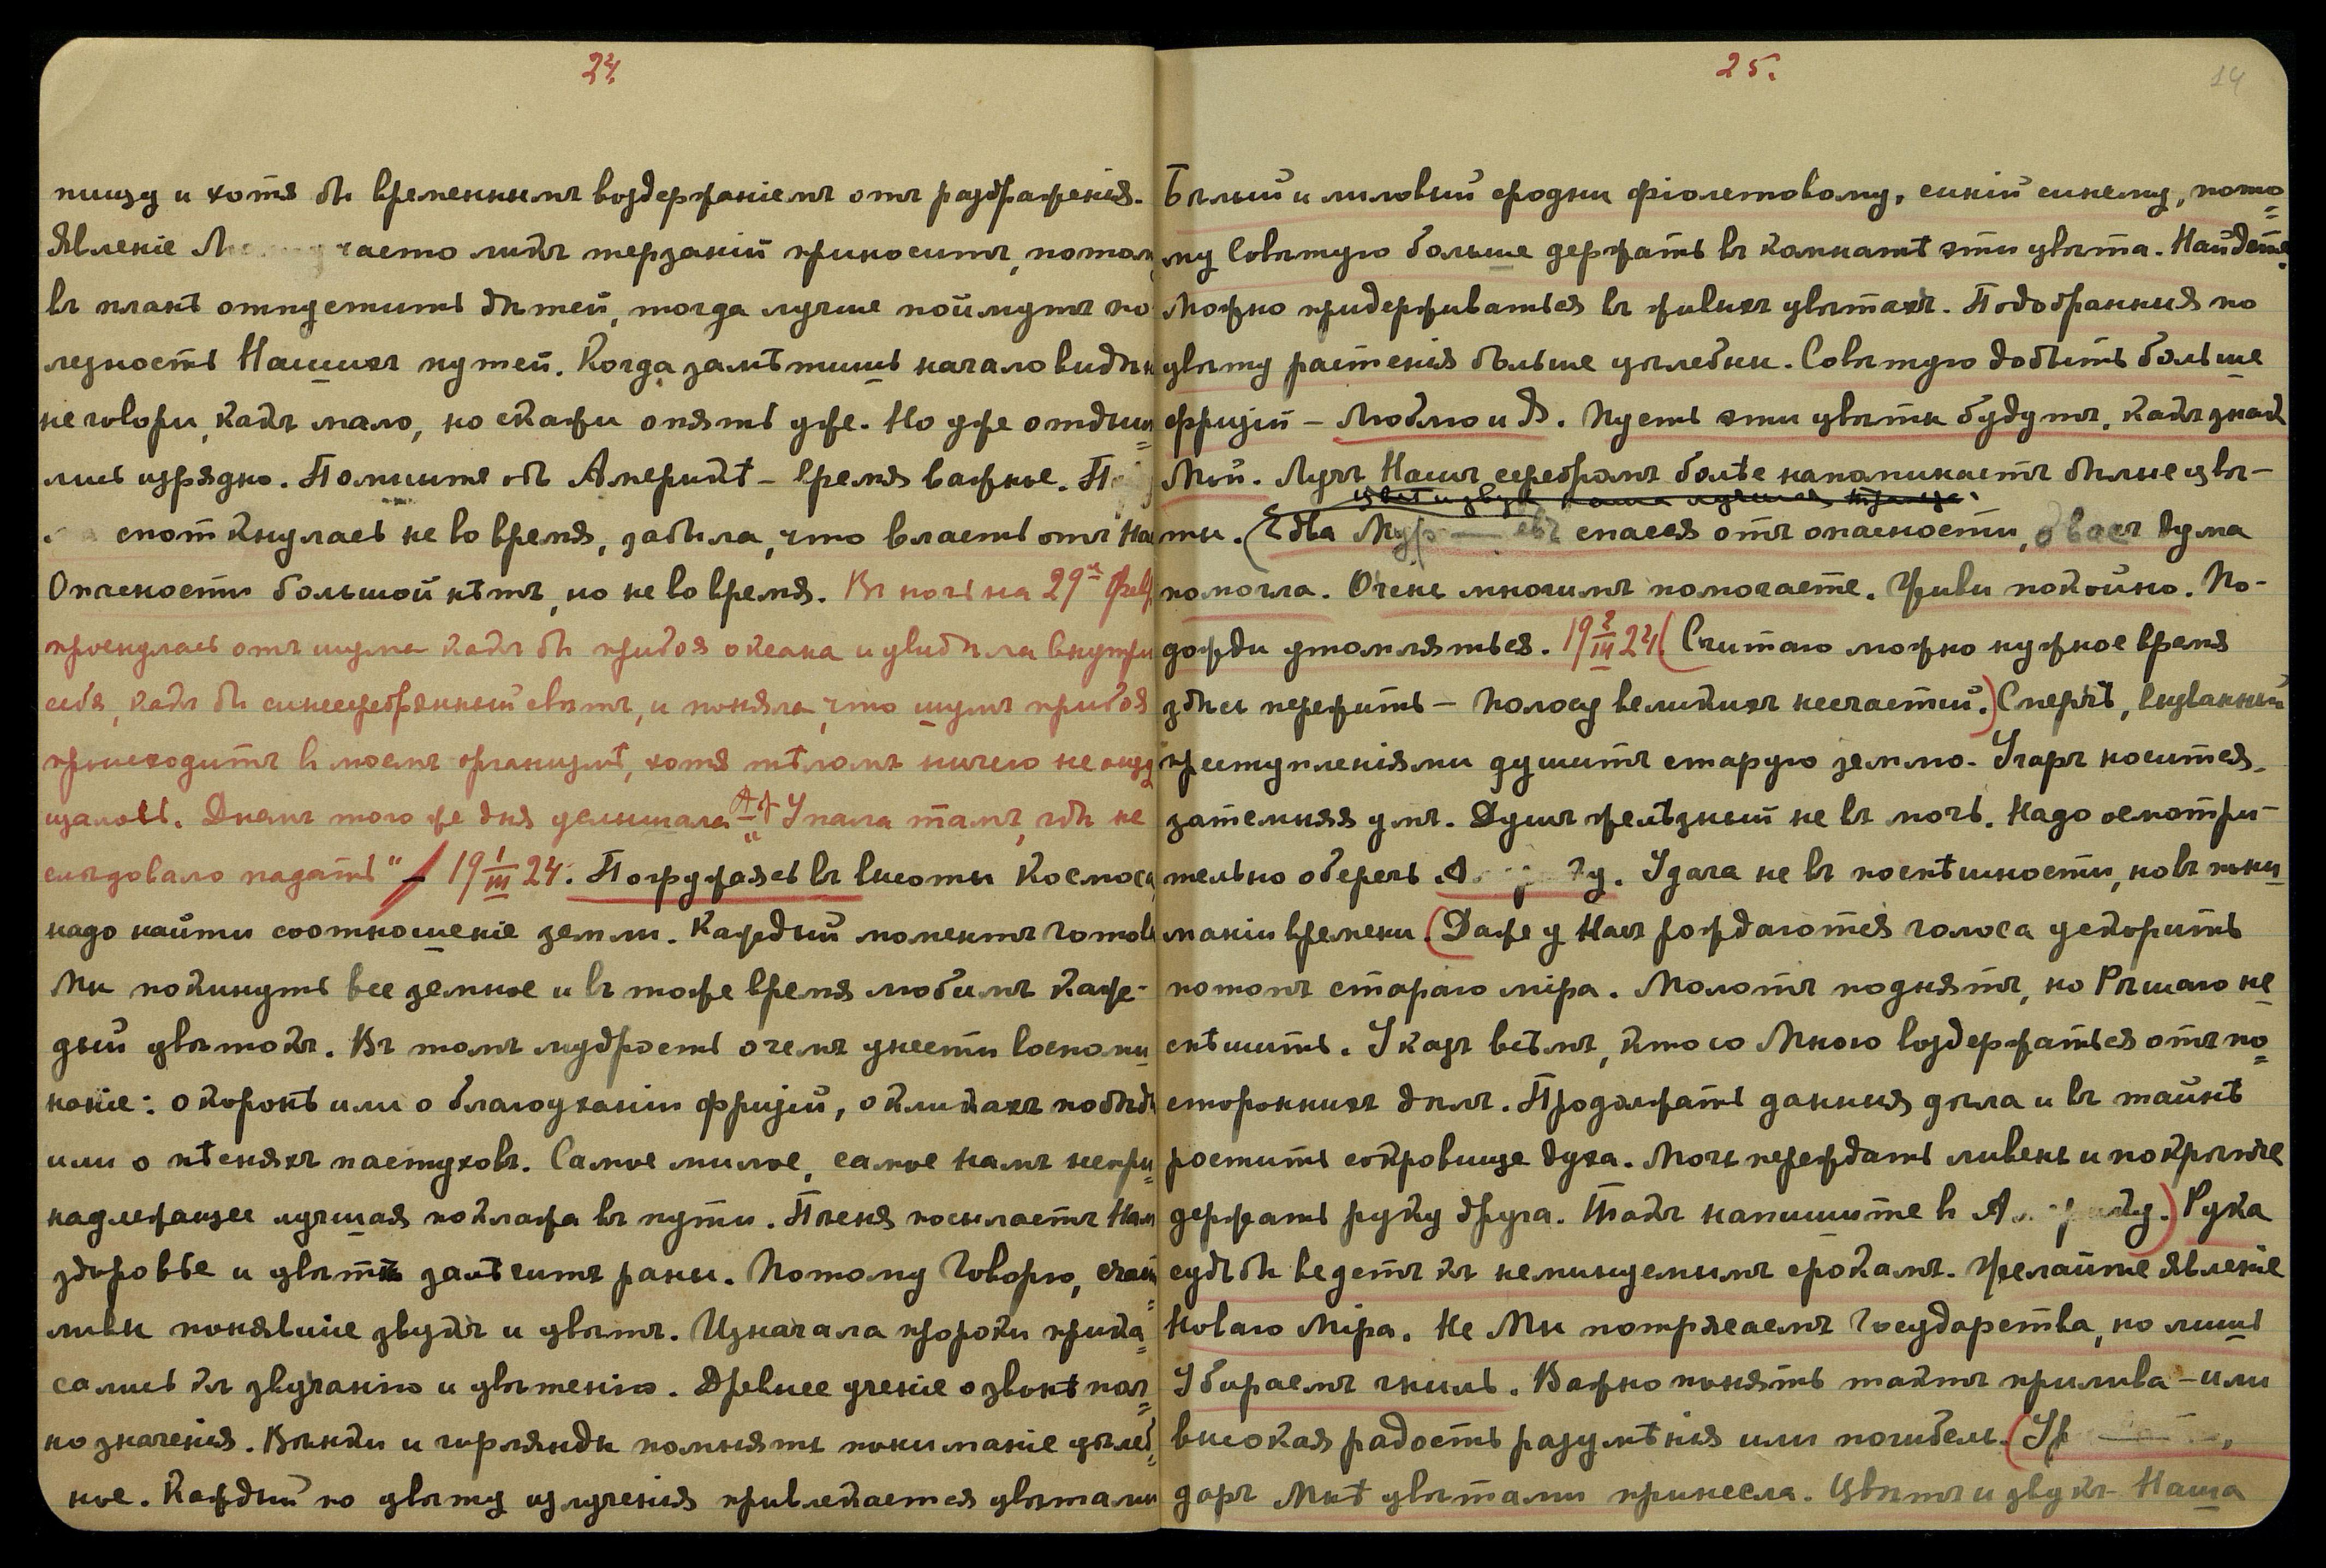 24.
пищу и хотя бы временнымъ воздержаніемъ отъ раздраженія.
Явленіе часто ликъ терзаній приноситъ, потом
въ планѣ отпустить дѣтей, тогда лучше поймутъ по
лезность Нашихъ путей. Когда замѣтишь начало видѣн
не говори, какъ мало, но скажи опять уже. Но уже отдѣли=
лись изрядно. Помните объ Америкѣ – время важное.
споткнулась не во время, забыла, что власть отъ На
Опасности большой нѣтъ, но не во время. Въ ночь на 29ое Фев
проснулась отъ шума какъ бы прибоя океана и увидѣла внутри
себя, какъ бы синесеребрянный свѣтъ, и поняла, что шумъ прибоя
происходитъ в моемъ организмѣ, хотя тѣломъ ничего не ощу
щалось. Днемъ того же дня услышала „Упала тамъ, гдѣ не
слѣдовало падать" – 19 1/III 24. Погружаясь въ высоты Космоса,
надо найти соотношеніе земли. Каждый моментъ готов
Мы покинуть все земное и въ тоже время любимъ каж-
дый цвѣтокъ. Въ томъ мудрость о чемъ унести воспоми
наніе: о коронѣ или о благоуханіи фризій, о кликахъ побѣды
или о пѣсняхъ пастуховъ. Самое милое, самое намъ непри=
надлежащее лучшая поклажа въ пути. Пѣсня посылаетъ Нам
здоровье и цвѣты залѣчитъ раны. Потому Говорю, счаст=
ливы понявшіе звукъ и цвѣтъ. Изначала пророки прика=
сались къ звучанію и цвѣтенію. Древнее ученіе о звонѣ пол=
но значенія. Вѣнки и гирлянды помнятъ пониманіе цѣлеб=
ное. Каждый по цвѣту излученія привлекается цвѣтами
25.
14
Бѣлый и лиловый сродни фіолетовому, синій синему, пото=
му Совѣтую больше держать въ комнатѣ эти цвѣта. Найдете,
Можно придерживаться въ живыхъ цвѣтахъ. Подобранныя по
цвѣту растенія больше цѣлебны. Совѣтую добыть больше
фризій – Люблю и Я. Пусть эти цвѣты будутъ, какъ знакъ
Мой. Лучъ Нашъ серебромъ болѣе напоминаетъ бѣлые цвѣ-
ты. (Едва спасся отъ опасности, дума
помогла. Очень многимъ помогаете. Живи покойно. По-
дожди утомляться. 19 2/III 24 (Считаю можно нужное время
здѣсь пережить – Полосу великихъ несчастій.) Смерчъ, вызванный
преступленіями душитъ старую землю. Угаръ носится,
затемняя умъ. Душъ желѣзный не въ мочь. Надо осмотри-
тельно оберечь. Удача не въ поспѣшности, но въ пони
маніи времени. (Даже у Насъ рождаются голоса ускорить
потопъ стараго міра. Молотъ поднятъ, но Рѣшаю не
спѣшить. Указъ всѣмъ, кто со Мною воздержаться отъ по=
стороннихъ дѣлъ. Продолжать данныя дѣла и въ тайнѣ
ростить сокровище духа. Мочь переждать ливень и покрѣпче
держать руку друга. Такъ напишите в) Рука
судьбы ведетъ къ неминуемымъ срокамъ. Желайте явленіе
Новаго Міра. Не Мы потрясаемъ Государства, но лишь
Убираемъ гниль. Важно понять тактъ прилива – или
высокая радость разумѣнія или погибель.
даръ Мнѣ цвѣтами принесла. Цвѣтъ и звукъ – Наша